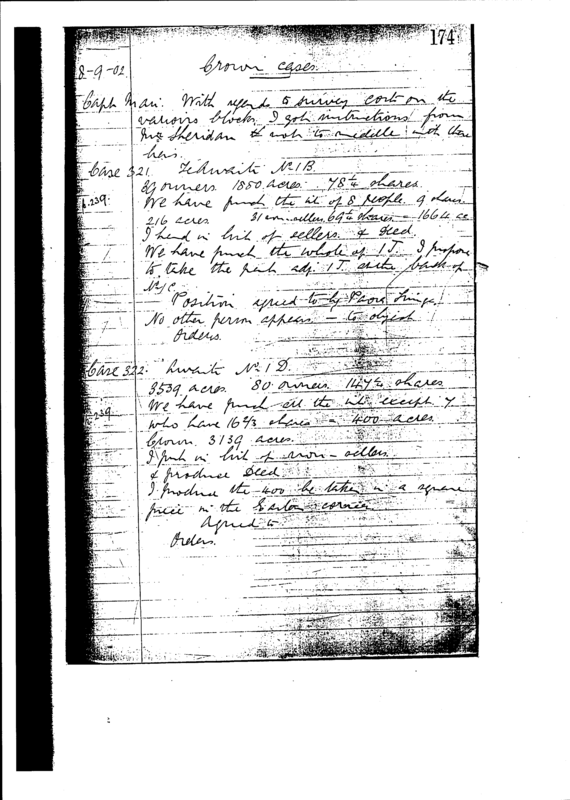 174
8-9-02 Crown cases.
Capt. Mair. With regards to survey costs on the
various blocks, I got instructions from
Mr Sheridan not to meddle with
Case 321. Te Awaite No 1B
1850 acres. 78 1/4 shares.
239. We have purch the int of 8 people. 9 shares
216 acres. 31 non-sellers 69 1/4 shares = 1664 ac
I hand in list of sellers & Deed.
We have purch the whole of 1J. I propose
to take the part adj. 1J. on the back of
No 1C
Position agreed to by Paora
No other person appears - to object
Orders.
Case 322. Awaite No 1D.
3539 acres. 80 owners. 147 1/2 shares
239 We have purch all the ints except 7
who have 16 2/3 shares = 400 acres
Crown 3139 acres.
I put in list of non-sellers
& produce Deed
I produce the 400 be taken in a square
piece in the Eastern corner
Agreed to
Orders.